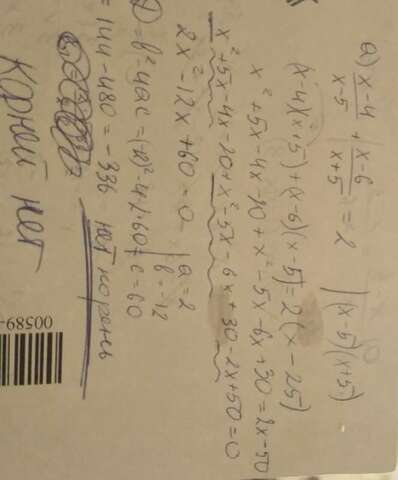 а) x-4/x-5 + x-6/x+5 = 2 | (x-5)(x+5)
(x-4)(x+5)+(x-6)(x-5)=2(x-25)
x²+5x-4x-20+x²-5x-6x+30=2x-50
x²+5x-4x-20+x²-5x-6x+30-2x+50=0
2x²-12x+60=0 | a=2
b=-12
c=60
D=b²-4ac=(-12²-4)·60=
=144-480=-336 нет корень
Корней нет
00589-